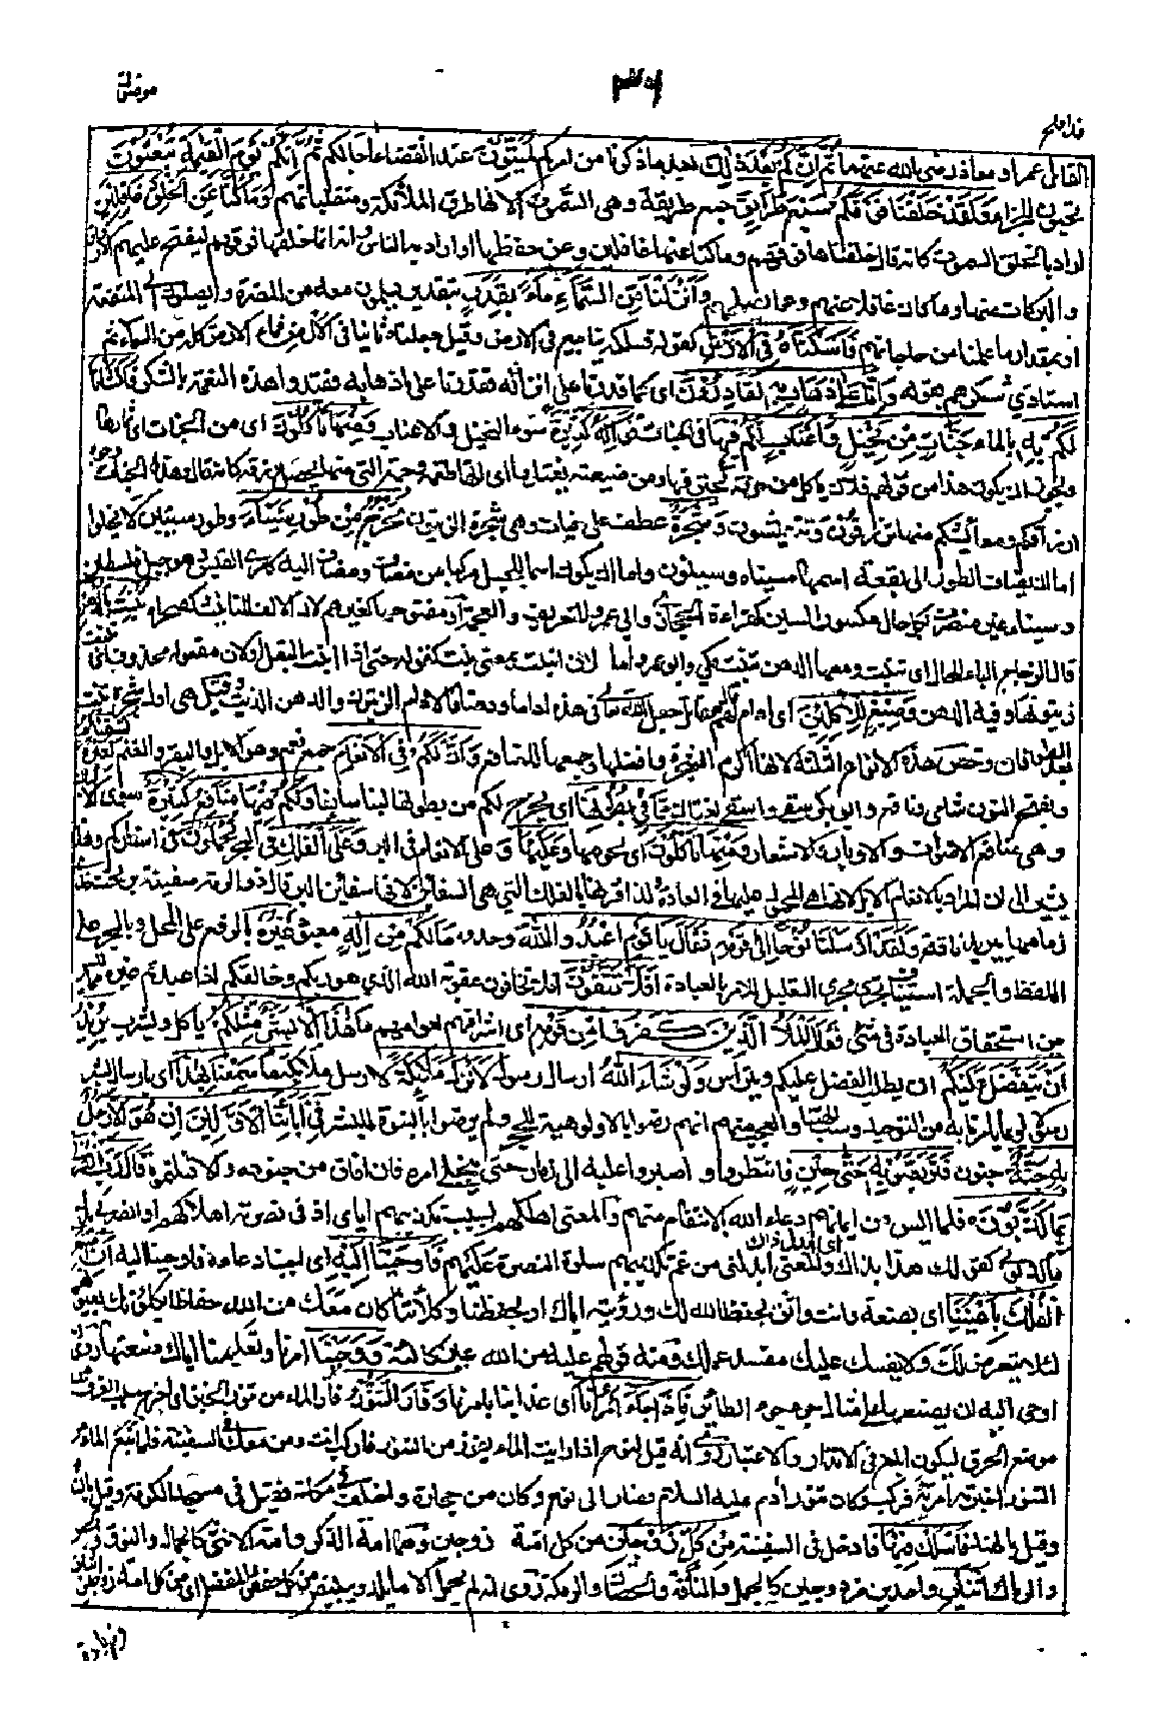 قد افلح
القائل عمر او معاذ رضى الله عنهما ثُمَّ إِنَّكُمْ بَعْدَ ذَٰلِكَ بعد ما ذكرنا من امركم لَمَيِّتُونَ عند انقضاء آجالكم ثُمَّ إِنَّكُمْ يَوْمَ الْقِيَٰمَةِ تُبْعَثُونَ
تحيون للجزاء وَلَقَدْ خَلَقْنَا فَوْقَكُمْ سَبْعَ طَرَائِقَ جمع طريقة وهى السموات لانها طرق الملائكة ومتقلباتهم وَمَا كُنَّا عَنِ الْخَلْقِ غَافِلِينَ
اراد بالخلق السموات كانه قال خلقناها فوقهم وما كنا عنها غافلين وعن حفظها او اراد به الناس وانه انما خلقها فوقهم ليفتح عليهم الارزاق
والبركات منها وما كان غافلا عنهم وعما يصلحهم وَأَنْزَلْنَا مِنَ السَّمَاءِ مَاءً بِقَدَرٍ بتقدير يسلمون معه من المضرة ويصلون الى المنفعة
او بمقدار ما علمنا من حاجاتهم فَأَسْكَنَّاهُ فِي الْأَرْضِ كقوله فسلكه ينابيع فى الارض وقيل جعلناه ثابتا فى الارض فماء الارض كله من السماء ثم
استادى شكرهم بقوله وَإِنَّا عَلَىٰ ذَهَابٍ بِهِ لَقَادِرُونَ اى كما قدرنا على انزاله فقدرنا على اذهابه فقيدوا هذه النعمة بالشكر فَأَنْشَأْنَا
لَكُمْ بِهِ بالماء جَنَّاتٍ مِنْ نَخِيلٍ وَأَعْنَابٍ لَكُمْ فِيهَا فى الجنات فَوَاكِهُ كَثِيرَةٌ سوى النخيل والاعناب وَمِنْهَا تَأْكُلُونَ اى من الجنات اى ثمارها
ويجوز ان يكون هذا من قولهم فلان ياكل من حرفة يحترفها ومن ضيعة يغتلها اى انها طعمته وجهته التى منها يحصل رزقه كانه قال هذه الجنات وجوه
ارزاقكم ومعائشكم منها ترزقون وتتعيشون وَشَجَرَةً عطف على جنات وهى شجرة الزيتون تَخْرُجُ مِنْ طُورِ سَيْنَاءَ وطور سينين لا يخلوا
اما ان يضاف الطور الى بقعة اسمها سيناء وسينون واما ان يكون اسما للجبل مركبا من مضاف ومضاف اليه كامرئ القيس وهو جبل فلسطين
وسيناء غير منصرف بكل حال مكسور السين كقراءة الحجازى وابى عمرو للتعريف والعجمة او مفتوحها كغيرهم لان الالف للتانيث كصحراء تَنْبُتُ بِالدُّهْنِ
قال الزجاج الباء للحال اى تنبت ومعها الدهن تنبت مكى وابو عمرو اما لان انبت بمعنى نبت كقوله حتى اذا انبت البقل او لان مفعوله محذوف اى تنبت
زيتونها وفيه الدهن وَصِبْغٍ لِلْآكِلِينَ اى ادام لهم قال مقاتل جعل الله تعالى فى هذه اداما ودهنا فالادام الزيتون والدهن الزيت وقيل هى اول شجرة نبتت
بعد الطوفان وخص هذه الانواع الثلثة لانها اكرم الشجرة وافضلها واجمعها للمنافع وَإِنَّ لَكُمْ فِي الْأَنْعَامِ جمع نعم وهو الابل والبقر والغنم لَعِبْرَةً نُسْقِيكُمْ
وبفتح النون شامى ونافع وابو بكر وسقى واسقى لغتان مِمَّا فِي بُطُونِهَا اى نخرج لكم من بطونها لبنا سائغا وَلَكُمْ فِيهَا مَنَافِعُ كَثِيرَةٌ سوى الالبان
وهى منافع الاصواف والاوبار والاشعار وَمِنْهَا تَأْكُلُونَ اى لحومها وَعَلَيْهَا وعلى الانعام فى البر وَعَلَى الْفُلْكِ فى البحر تُحْمَلُونَ فى اسفاركم وهذا
يشير الى ان المراد بالانعام الابل لانها هى المحمل عليها فى العادة فلذا قرنها بالفلك التى هى السفائن لانها سفائن البر قال ذو الرمة سفينة بر تحت خدى
زمامها يريد ناقته وَلَقَدْ أَرْسَلْنَا نُوحًا إِلَىٰ قَوْمِهِ فَقَالَ يَا قَوْمِ اعْبُدُوا اللَّهَ وحدوه مَا لَكُمْ مِنْ إِلَٰهٍ معبود غَيْرُهُ بالرفع على المحل وبالجر على
اللفظ والجملة استيناف يجرى مجرى التعليل للامر بالعبادة أَفَلَا تَتَّقُونَ افلا تخافون عقوبة الله الذى هو ربكم وخالقكم اذا عبدتم غيره مما ليس
من استحقاق العبادة فى شئ فَقَالَ الْمَلَأُ الَّذِينَ كَفَرُوا مِنْ قَوْمِهِ اى اشرافهم لعوامهم مَا هَٰذَا إِلَّا بَشَرٌ مِثْلُكُمْ ياكل ويشرب يُرِيدُ
أَنْ يَتَفَضَّلَ عَلَيْكُمْ ان يطلب الفضل عليكم ويترأس وَلَوْ شَاءَ اللَّهُ ارسال رسول لَأَنْزَلَ مَلَائِكَةً لارسل ملائكة مَا سَمِعْنَا بِهَٰذَا اى بارسال بشر
رسولا او بما يامرنا به من التوحيد وسب الهتنا والعجب منهم انهم رضوا بالالوهية للحجر ولم يرضوا بالنبوة للبشر فِي آبَائِنَا الْأَوَّلِينَ إِنْ هُوَ إِلَّا رَجُلٌ
بِهِ جِنَّةٌ جنون فَتَرَبَّصُوا بِهِ حَتَّىٰ حِينٍ فانتظروا واصبروا عليه الى زمان حتى ينجلى امره فان افاق من جنونه والا قتلتموه قَالَ رَبِّ انْصُرْنِي
بِمَا كَذَّبُونِ فلما ايس من ايمانهم دعاء الله بالانتقام منهم والمعنى اهلكهم بسبب تكذيبهم اياى اذ فى نصرته اهلاكهم او انصرنى بدل
ما كذبونى كقولك هذا بذاك اى بدل ذاك والمعنى ابدلنى من غم تكذيبهم سلوة النصرة عليهم فَأَوْحَيْنَا إِلَيْهِ اى اجبنا دعاءه فاوحينا اليه أَنِ اصْنَعِ
الْفُلْكَ بِأَعْيُنِنَا اى تصنعه وانت واثق بحفظ الله لك ورؤيته اياك او بحفظنا وكلائتنا كان معك من الله حفاظا يكلؤنك بعيونهم
لئلا يتعرض لك ولا يفسد عليك مفسد عملك ومنه قولهم عليه من الله عين كالئة وَوَحْيِنَا امرنا وتعليمنا اياك صنعتها روى
اوحى اليه ان يصنعها على مثال جؤجؤ الطائر فَإِذَا جَاءَ أَمْرُنَا اى عذابنا بامرنا وَفَارَ التَّنُّورُ فار الماء من تنور الخبز اى اخرج سبب الغرق من
موضع الحرق ليكون ابلغ فى الانذار والاعتبار روى انه قيل لنوح اذا رايت الماء يفور من التنور فاركب انت ومن معك فى السفينة فلما نبع الماء من
التنور اخبرته امرأته فركب وكان تنور ادم عليه السلام فصار الى نوح وكان من حجارة واختلف فى مكانه فقيل فى مسجد الكوفة وقيل بالشام
وقيل بالهند فَاسْلُكْ فِيهَا فادخل فى السفينة مِنْ كُلٍّ زَوْجَيْنِ من كل امة زوجين وهما امة الذكر وامة الانثى كالجمال والنوق والحصن
والرماك اثْنَيْنِ واحدين مزدوجين كالجمل والناقة والحصان والرمكة روى انه لم يحمل الا ما يلد ويبيض من كل حفص والمفضل اى من كل امة زوجين